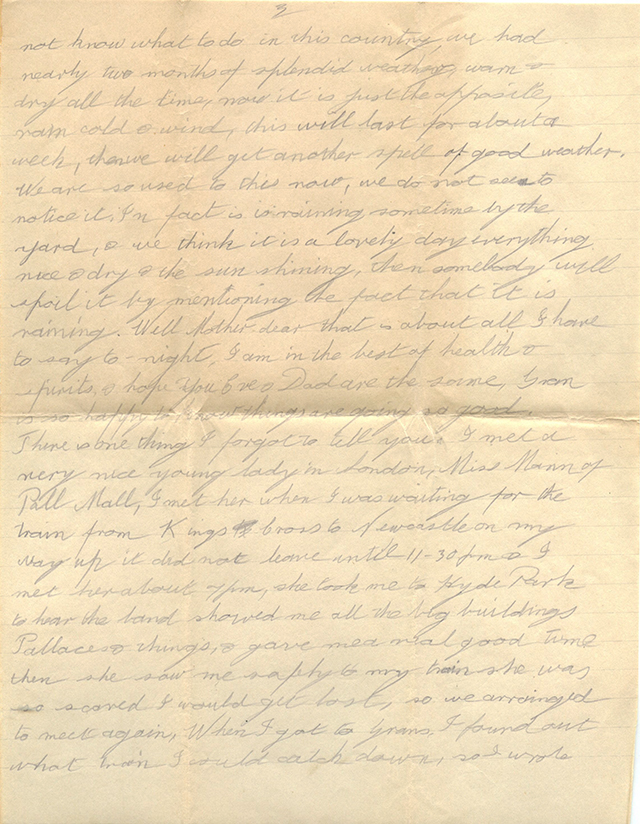 3
not know what to do in this country, we had
nearly two months of splendid weather, warm &
dry all the time, now it is just the opposite,
rain cold & wind, this will last for about a
week, then we will get another spell of good weather.
We are so used to this now, we do not see to
notice it. In fact is is raining sometime by the
yard, & we think it is a lovely day everything
nice & dry & the sun shining, then somebody will
spoil it by mentioning the fact that it is
raining. Well Mother dear that is about all I have
to say to-night, I am in the best of health &
spirits, & hope you Eve & Dad are the same, Gran
is so happy to know things are going so good.
There is one thing I forgot to tell you. I met a
very nice young lady in London, Miss Mann of
Pall Mall, I met her when I was waiting for the
train from Kings Cross to Newcastle on my
way up it did not leave until 11-30 pm & I
met her about 7 pm, she took me to Hyde Park
to hear the band showed me all the big buildings
Pallaces & things, & gave me a real good time
then she saw me safely to my train she was
so scared I would get lost, so we arrainged
to meet again, When I got to Grans I found out
what train I would catch down, so I wrote